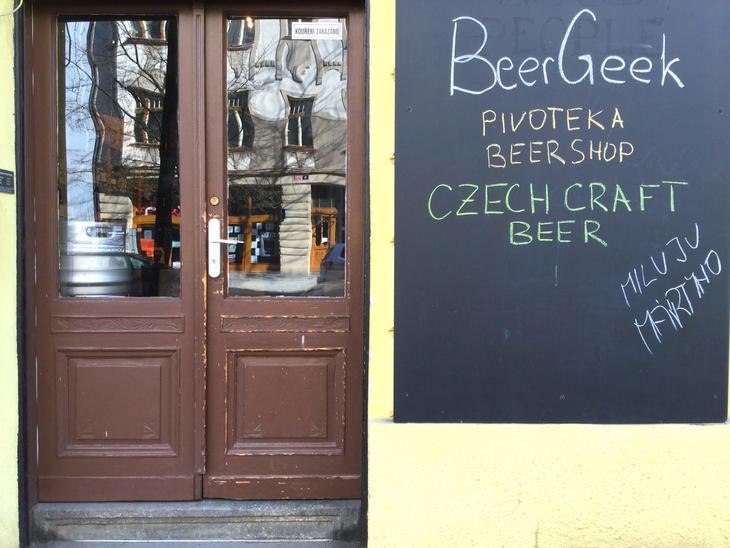 KOUŘENÍ ZAKÁZÁNO
BeerGeek
PIVOTEKA
BEERSHOP
CZECH CRAFT
BEER
MILUJU